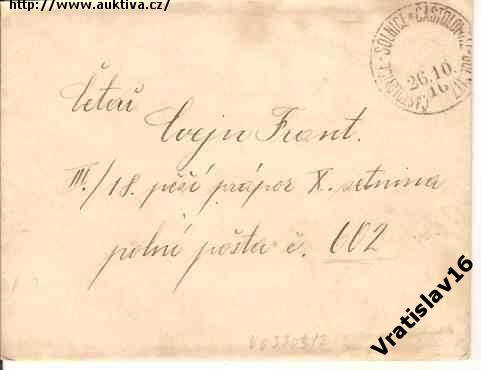 http://www.auktiva.cz/
SOLNICE * ČASTOLOVICE
26.10.
16
četař
Cvejn Frant.
III./18. pěší prápor X. setnina
polní pošta č. 602
Vratislav16